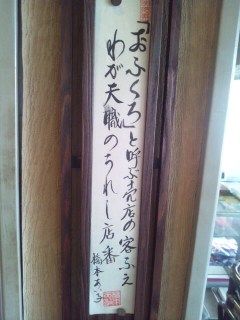 「おふくろ」と呼ぶ売店の客ふえ
わが天職のうれし店番
橋本